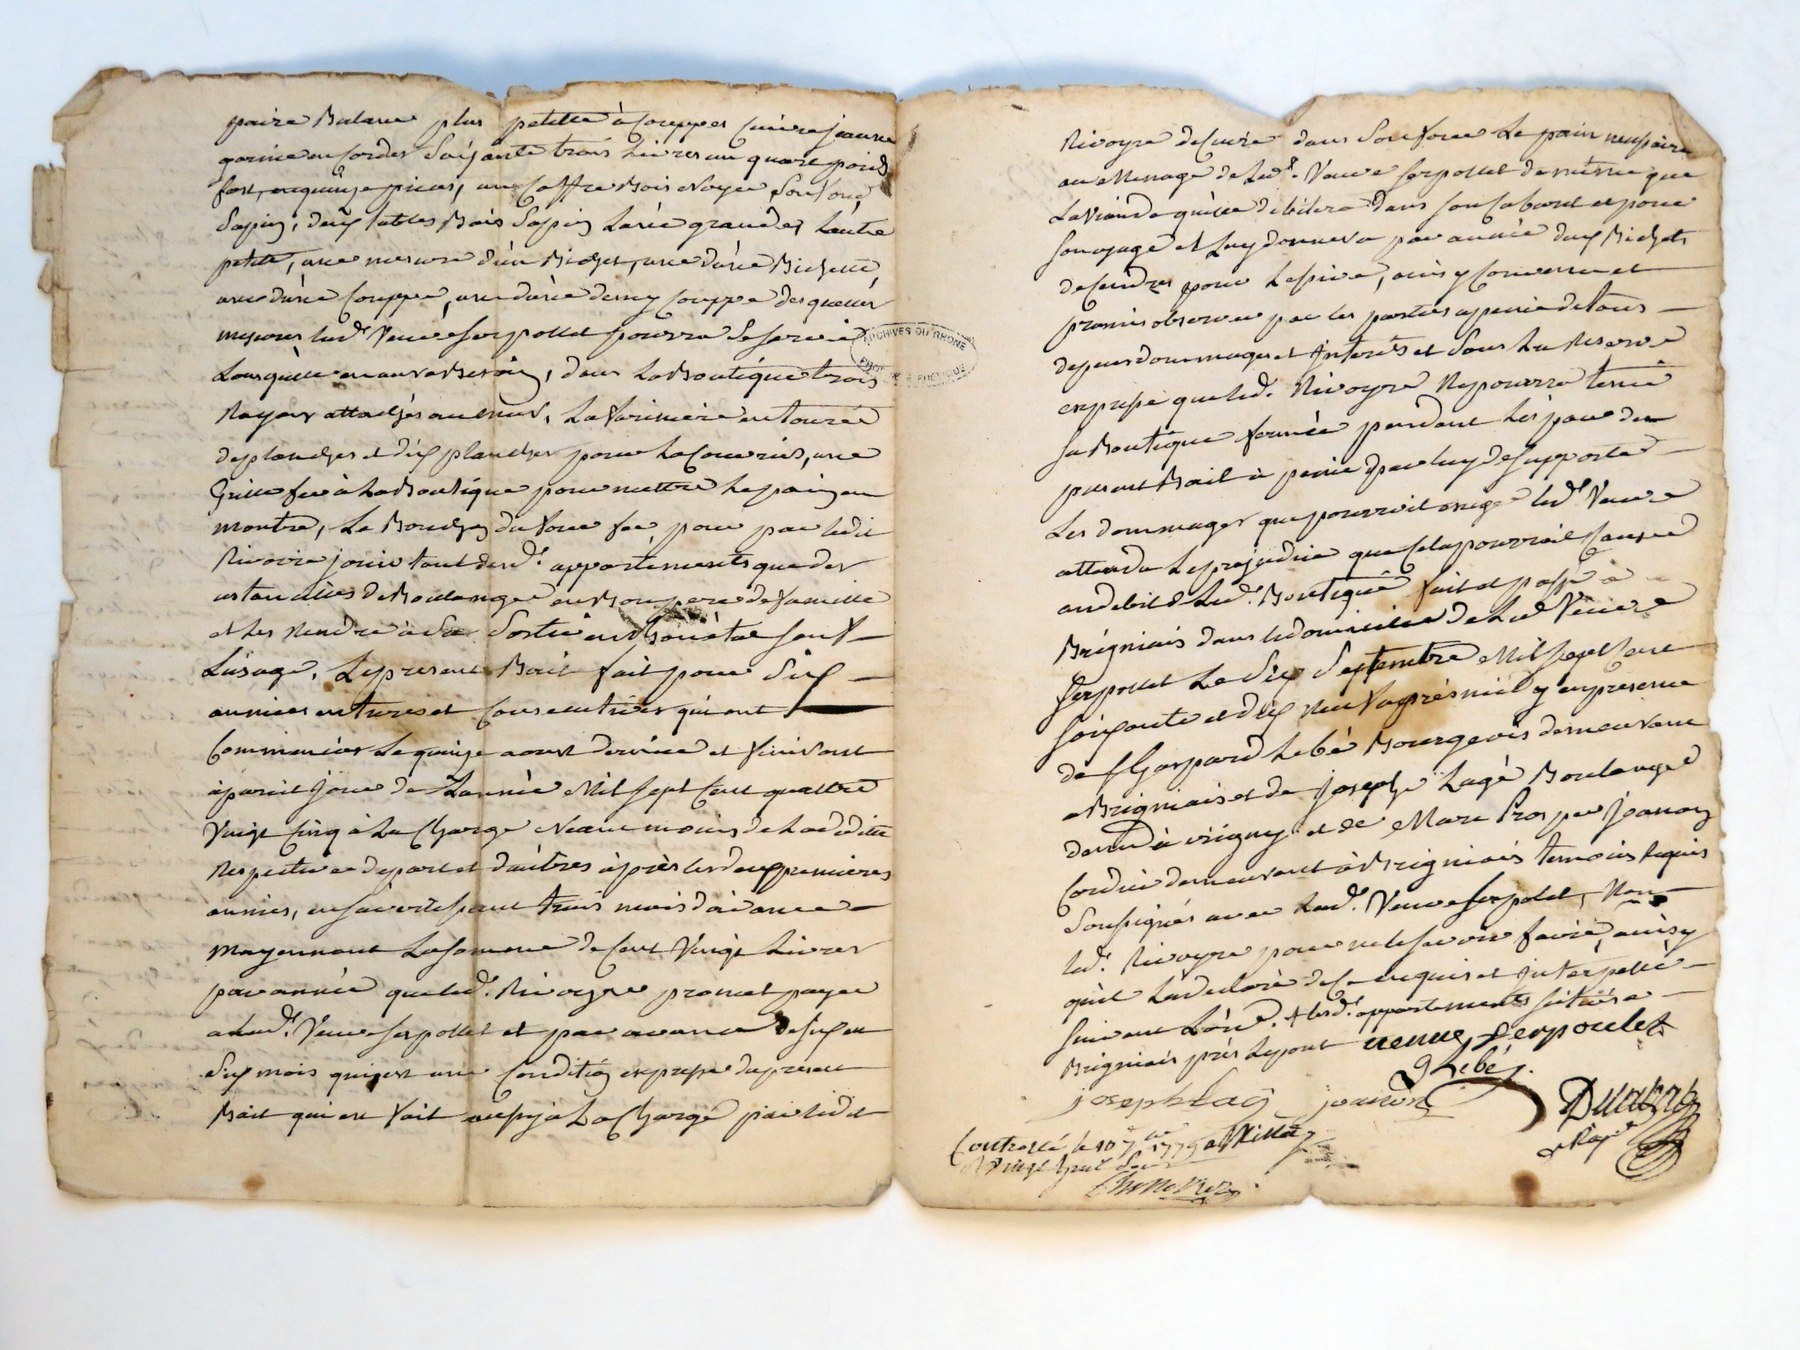 paire Balance plus petitte à Couppes Cuivre jeaune
garnie en Cordes Soixante trois Livres un quare poid
fort, en quinze pieces, un Coffre Bois Noyer Son fond
Sapin, deux tables Bois Sapin Lune grande et Lautre
petitte, une mesure d'un Bichet, une d'une Bichette,
une d'une Couppe, une d'une demy Couppe desquelles
mesures lad.e Veuve Serpollet pourra Se Servir
Lorsquelle en aura Besoin, dans La Boutique trois
Rayons attachés au mur, La farinière entourée
de planches et dix planches pour Le Couvrir, une
Grille fer à La Boutique pour mettre Le pain en
montre, Le Bouchon du four fer, pour par ledit
Rivoire jouir tant desd.s appartements que des
ustancilles de Boulanger en Bon pere de famille
et Les Rendre à Sa Sortie en Bon état Sauf
Lusage, Le present Bail fait pour Six
années entieres et Consecutives qui ont
Commencées Le quinze aoust dernier et finiront
à pareil jour de Lannée Mil Sept Cent quattre
Vingt Cinq à La Charge Neanmoins de La dditte
Respective de part et dautres après les deux premieres
années, en savertissant trois mois davance
moyennant La Somme de Cent Vingt Livres
par année que led. Rivoyre promet payer
a lad.e Veuve Serpollet et par avance de Six en
Six mois qui est une Condition expresse du present
Bail qui est fait aussy à La Charge par ledit
Rivoyre de Cuire dans Son four Le pain necessaire
au Menage de Lad.e Veuve Serpollet de même que
La Viande quelle debitera dans Son Cabaret et pour
Son usage et Luy donnera par année deux Bichets
de Cendres pour Lessive, ainsy Convenu et
promis observer par les parties a peine de tous
depens dommages et Interets et Sous La Reserve
expresse que led. Rivoyre Ne pourra tenir
Sa Boutique fermée pendant Lespace du
present Bail à peine par luy de Supporter
Les dommages que pourroit exiger lad.e Veuve
attendu Le prejudice que Cela pourroit Causer
au debit de Lad.e Boutique fait et passé à
Brigniais dans le domicile de Lad.e Veuve
Serpollet Le Dix Septembre Mil Sept Cent
Soixante et dix neuf après midy en presence
de S. Gaspard Lebé Bourgeois demeurant
a Brigniais et de Joseph Lagé Boulanger
demt à irigny et de Marc Prosper Jeanon
Cordier demeurant à Brigniais temoins requis
Soussignés avec Lad.e Veuve Serpolet, Non
led. Rivoyre pour ne le Savoir faire, ainsy
quil La declaré de ce enquis et Interpellé
Suivant Lord.e + lesd.s appartements Scitués a
Brigniais près Le pont veuve Serpoulet
G Lebé
joseph lag jeanon
Controllé le 10 7bre 1779